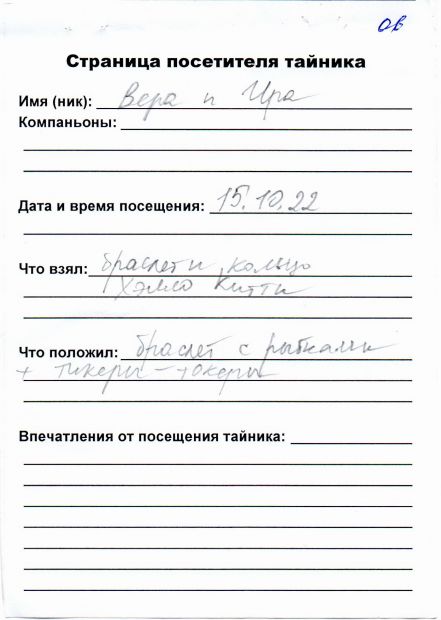 ОВ
Страница посетителя тайника
Имя (ник): Вера и Ира
Компаньоны:
Дата и время посещения: 15.10.22
Что взял: браслет и кольцо
Хэлло Китти
Что положил: браслет с рыбками
+ тикеры-токеры
Впечатления от посещения тайника: